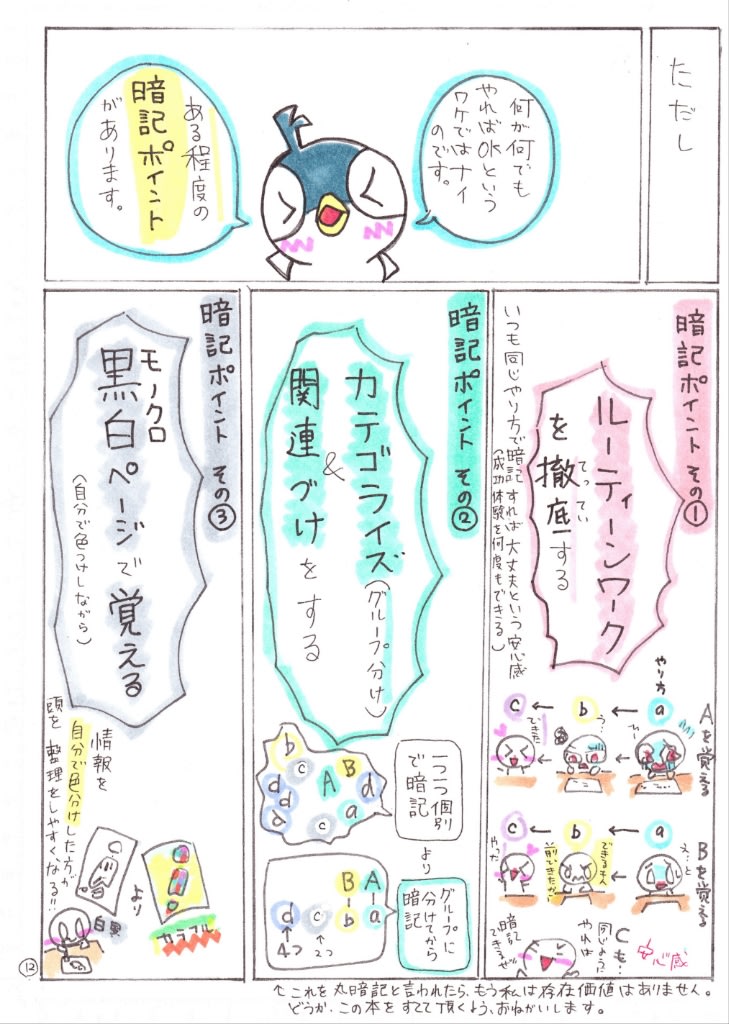 ただし
何が何でも
やればOKという
ワケではナイ
のです。
ある程度の
暗記ポイント
があります。
暗記ポイント その①
ルーティーンワーク
を徹底する
てってい
いつも同じやり方で暗記すれば大丈夫という安心感
(成功体験を何度もできる)
Aを覚える
やり方
a ← b ← c
う…
できた
Bを覚える
a ← b ← c
え…と
できるもん
前できたから
やった
Cも…
同じように
やれば
暗記
できるぜ!!
安心感
暗記ポイント その②
カテゴライズ(グループ分け)
&
関連づけをする
一つ一つ個別
で暗記
b c B d d A d a c a
より
グループに
分けてから
暗記
A-a
B-b
c
↑
2つ
d
↑
4つ
暗記ポイント その③
モノクロ
黒白ページで覚える
(自分で色つけしながら)
情報を
自分で色分けした方が
頭を整理をしやすくなる!!
カラフル
より
白黒
↑これを丸暗記と言われたら、もう私は存在価値はありません。
どうか、この本をすてて頂くよう、おねがいします。
12